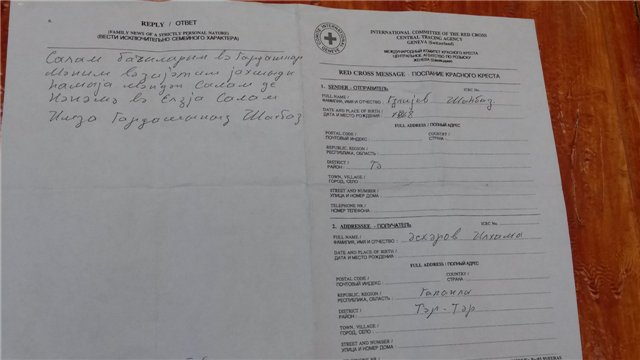 REPLY / ОТВЕТ
(FAMILY NEWS OF A STRICTLY PERSONAL NATURE)
(ВЕСТИ ИСКЛЮЧИТЕЛЬНО СЕМЕЙНОГО ХАРАКТЕРА)
Салам бачыларым вә гардашлар
мәним вәзијәтим јахшыды
һамыја мәндән Салам де
вә Елзја Салам
Гардашыныз Шаһбаз
COMITE INTERNATIONAL GENEVE
INTERNATIONAL COMMITTEE OF THE RED CROSS
CENTRAL TRACING AGENCY
GENEVA (Switzerland)
МЕЖДУНАРОДНЫЙ КОМИТЕТ КРАСНОГО КРЕСТА
ЦЕНТРАЛЬНОЕ АГЕНТСТВО ПО РОЗЫСКУ
ЖЕНЕВА (Швейцария)
RED CROSS MESSAGE - ПОСЛАНИЕ КРАСНОГО КРЕСТА
1. SENDER - ОТПРАВИТЕЛЬ
ICRC No.
FULL NAME /
ФАМИЛИЯ, ИМЯ И ОТЧЕСТВО : Шаһбаз
DATE AND PLACE OF BIRTH /
ДАТА И МЕСТО РОЖДЕНИЯ : 1968
FULL ADDRESS / ПОЛНЫЙ АДРЕС
POSTAL CODE / COUNTRY /
ПОЧТОВЫЙ ИНДЕКС : СТРАНА :
REPUBLIC, REGION /
РЕСПУБЛИКА, ОБЛАСТЬ :
DISTRICT /
РАЙОН : Тә
TOWN, VILLAGE /
ГОРОД, СЕЛО :
STREET AND NUMBER /
УЛИЦА И НОМЕР ДОМА :
TELEPHONE NR /
НОМЕР ТЕЛЕФОНА :
2. ADDRESSEE - ПОЛУЧАТЕЛЬ
ICRC No.
FULL NAME /
ФАМИЛИЯ, ИМЯ И ОТЧЕСТВО : Әсҝәров Илһамы
DATE AND PLACE OF BIRTH /
ДАТА И МЕСТО РОЖДЕНИЯ :
FULL ADDRESS / ПОЛНЫЙ АДРЕС
POSTAL CODE / COUNTRY /
ПОЧТОВЫЙ ИНДЕКС : СТРАНА :
REPUBLIC, REGION /
РЕСПУБЛИКА, ОБЛАСТЬ : Гапанлы
DISTRICT /
РАЙОН : Тәр-Тәр
TOWN, VILLAGE /
ГОРОД, СЕЛО :
STREET AND NUMBER /
УЛИЦА И НОМЕР ДОМА :